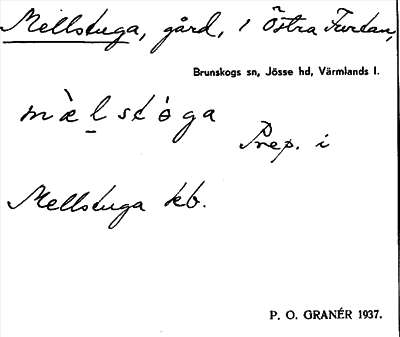 Mellstuga, gård, i Östra Furtan,
Brunskogs sn, Jösse hd, Värmlands l.
mæ̀l̠stɵ̀ga
Prep. i
Mellstuga kb.
P. O. GRANÉR 1937.